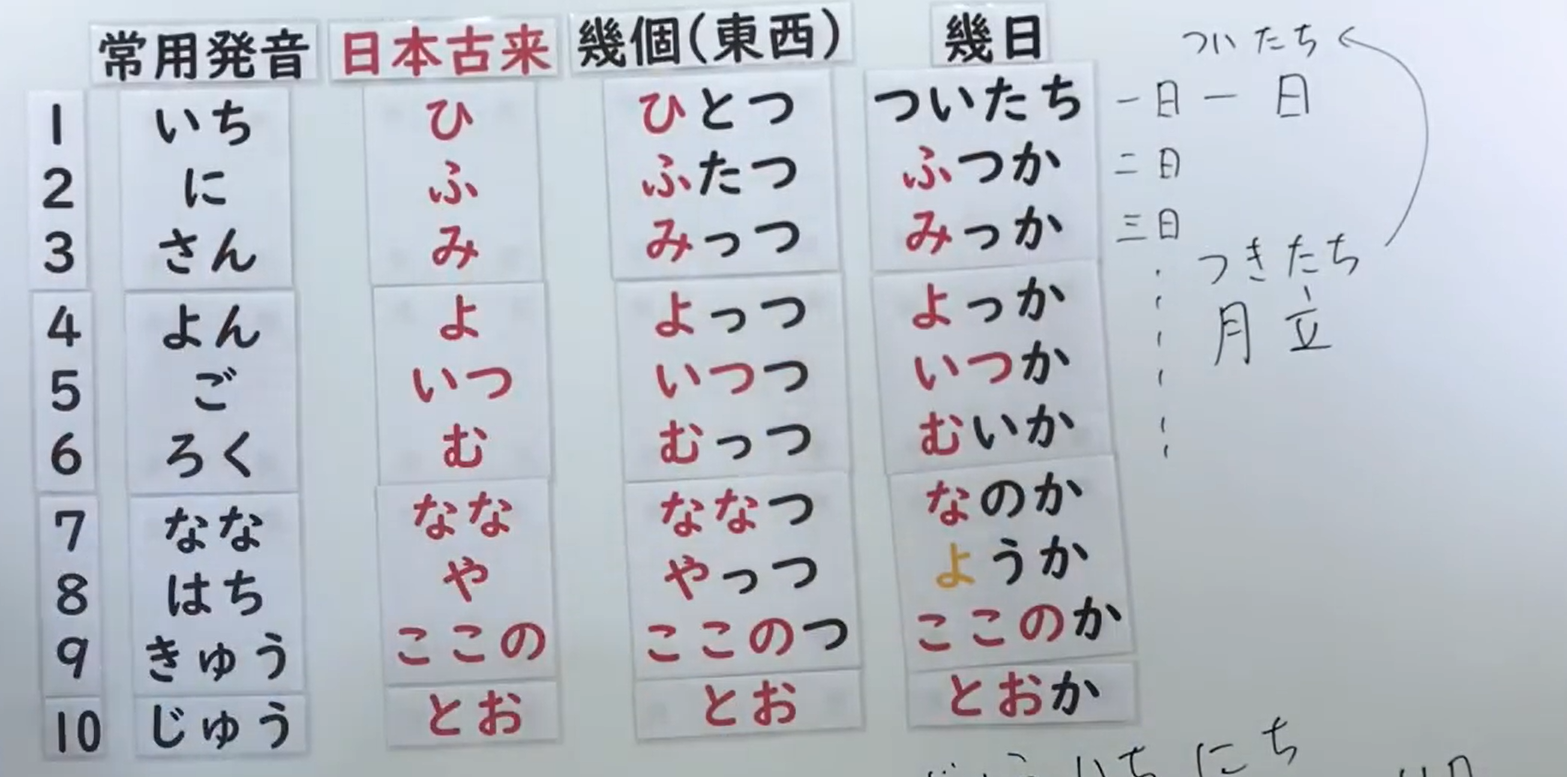 常用発音 日本古来 幾個(東西) 幾日 ついたち
1 いち ひ ひとつ ついたち 一日 一日
2 に ふ ふたつ ふつか 二日
3 さん み みっつ みっか 三日
つきたち
4 よん よ よっつ よっか 月立
5 ご いつ いつつ いつか
6 ろく む むっつ むいか
7 なな なな ななつ なのか
8 はち や やっつ ようか
9 きゅう ここの ここのつ ここのか
10 じゅう とお とお とおか
いちにち